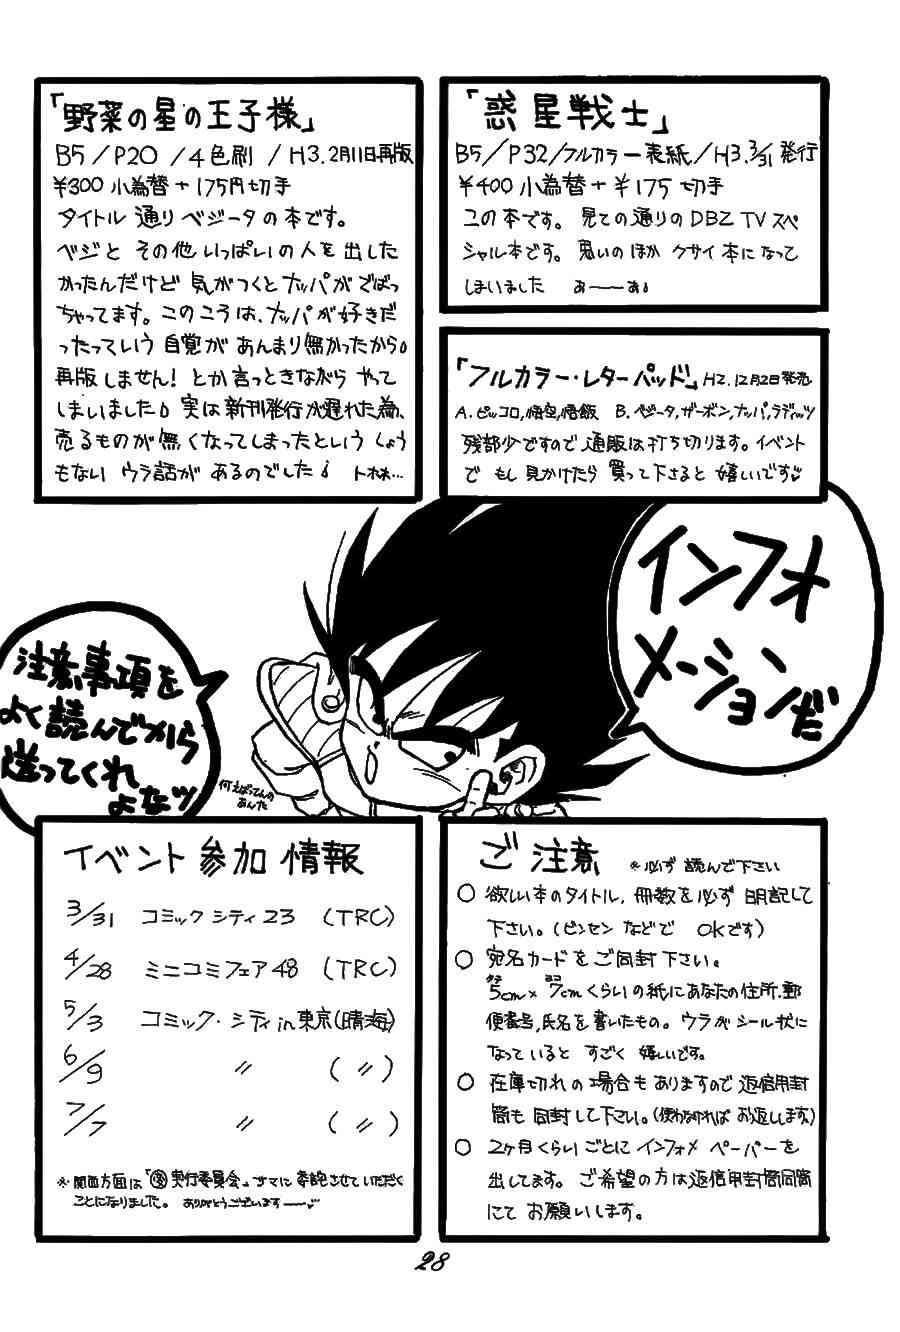 「野菜の星の王子様」
B5/P20/4色刷/H3.2月11日再版
¥300小為替+175円切手
タイトル通りベジータの本です。
ベジとその他いっぱいの人を出した
かったんだけど気がつくとナッパがでばっ
ちゃってます。このころは、ナッパが好きだ
ったっていう自覚があんまり無かったから。
再版しません!とか言っときながらやって
しまいました。実は新刊発行が遅れた為、
売るものが無くなってしまったというしょう
もないウラ話があるのでした。トホホ…
「惑星戦士」
B5/P32/フルカラー表紙/H3.3/31発行
¥400小為替+¥175切手
この本です。見ての通りのDBZTVスペ
シャル本です。思いのほかクサイ本になって
しまいました あーーあ。
「フルカラー・レターパッド」H2.12月2日発売
A.ピッコロ,悟空,悟飯 B.ベジータ,ザーボン,ナッパ,ラディッツ
残部少ですので通販は打ち切ります。イベント
でもし見かけたら買って下さると嬉しいです♡
インフォ
メーションだ
注意事項を
よく読んでから
送ってくれ
よなッ
何えばってんの
あんた
イベント参加情報
3/31 コミックシティ23 (TRC)
4/28 ミニコミフェア48 (TRC)
5/3 コミック・シティin東京(晴海)
6/9 〃 (〃)
7/7 〃 (〃)
※関西方面は「実行委員会」サマに委託させていただく
ことになりました。ありがとうございますーー♡
ご注意 ※必ず読んで下さい
○欲しい本のタイトル,冊数を必ず明記して
下さい。(ビンセンなどでOKです)
○宛名カードをご同封下さい。
タテ5cm×ヨコ7cmくらいの紙にあなたの住所.郵
便番号,氏名を書いたもの。ウラがシール状に
なっているとすごく嬉しいです。
○在庫切れの場合もありますので返信用封
筒も同封して下さい。(使わなければお返しします)
○2ヶ月くらいごとにインフォメペーパーを
出してます。ご希望の方は返信用封筒同筒
にてお願いします。
28